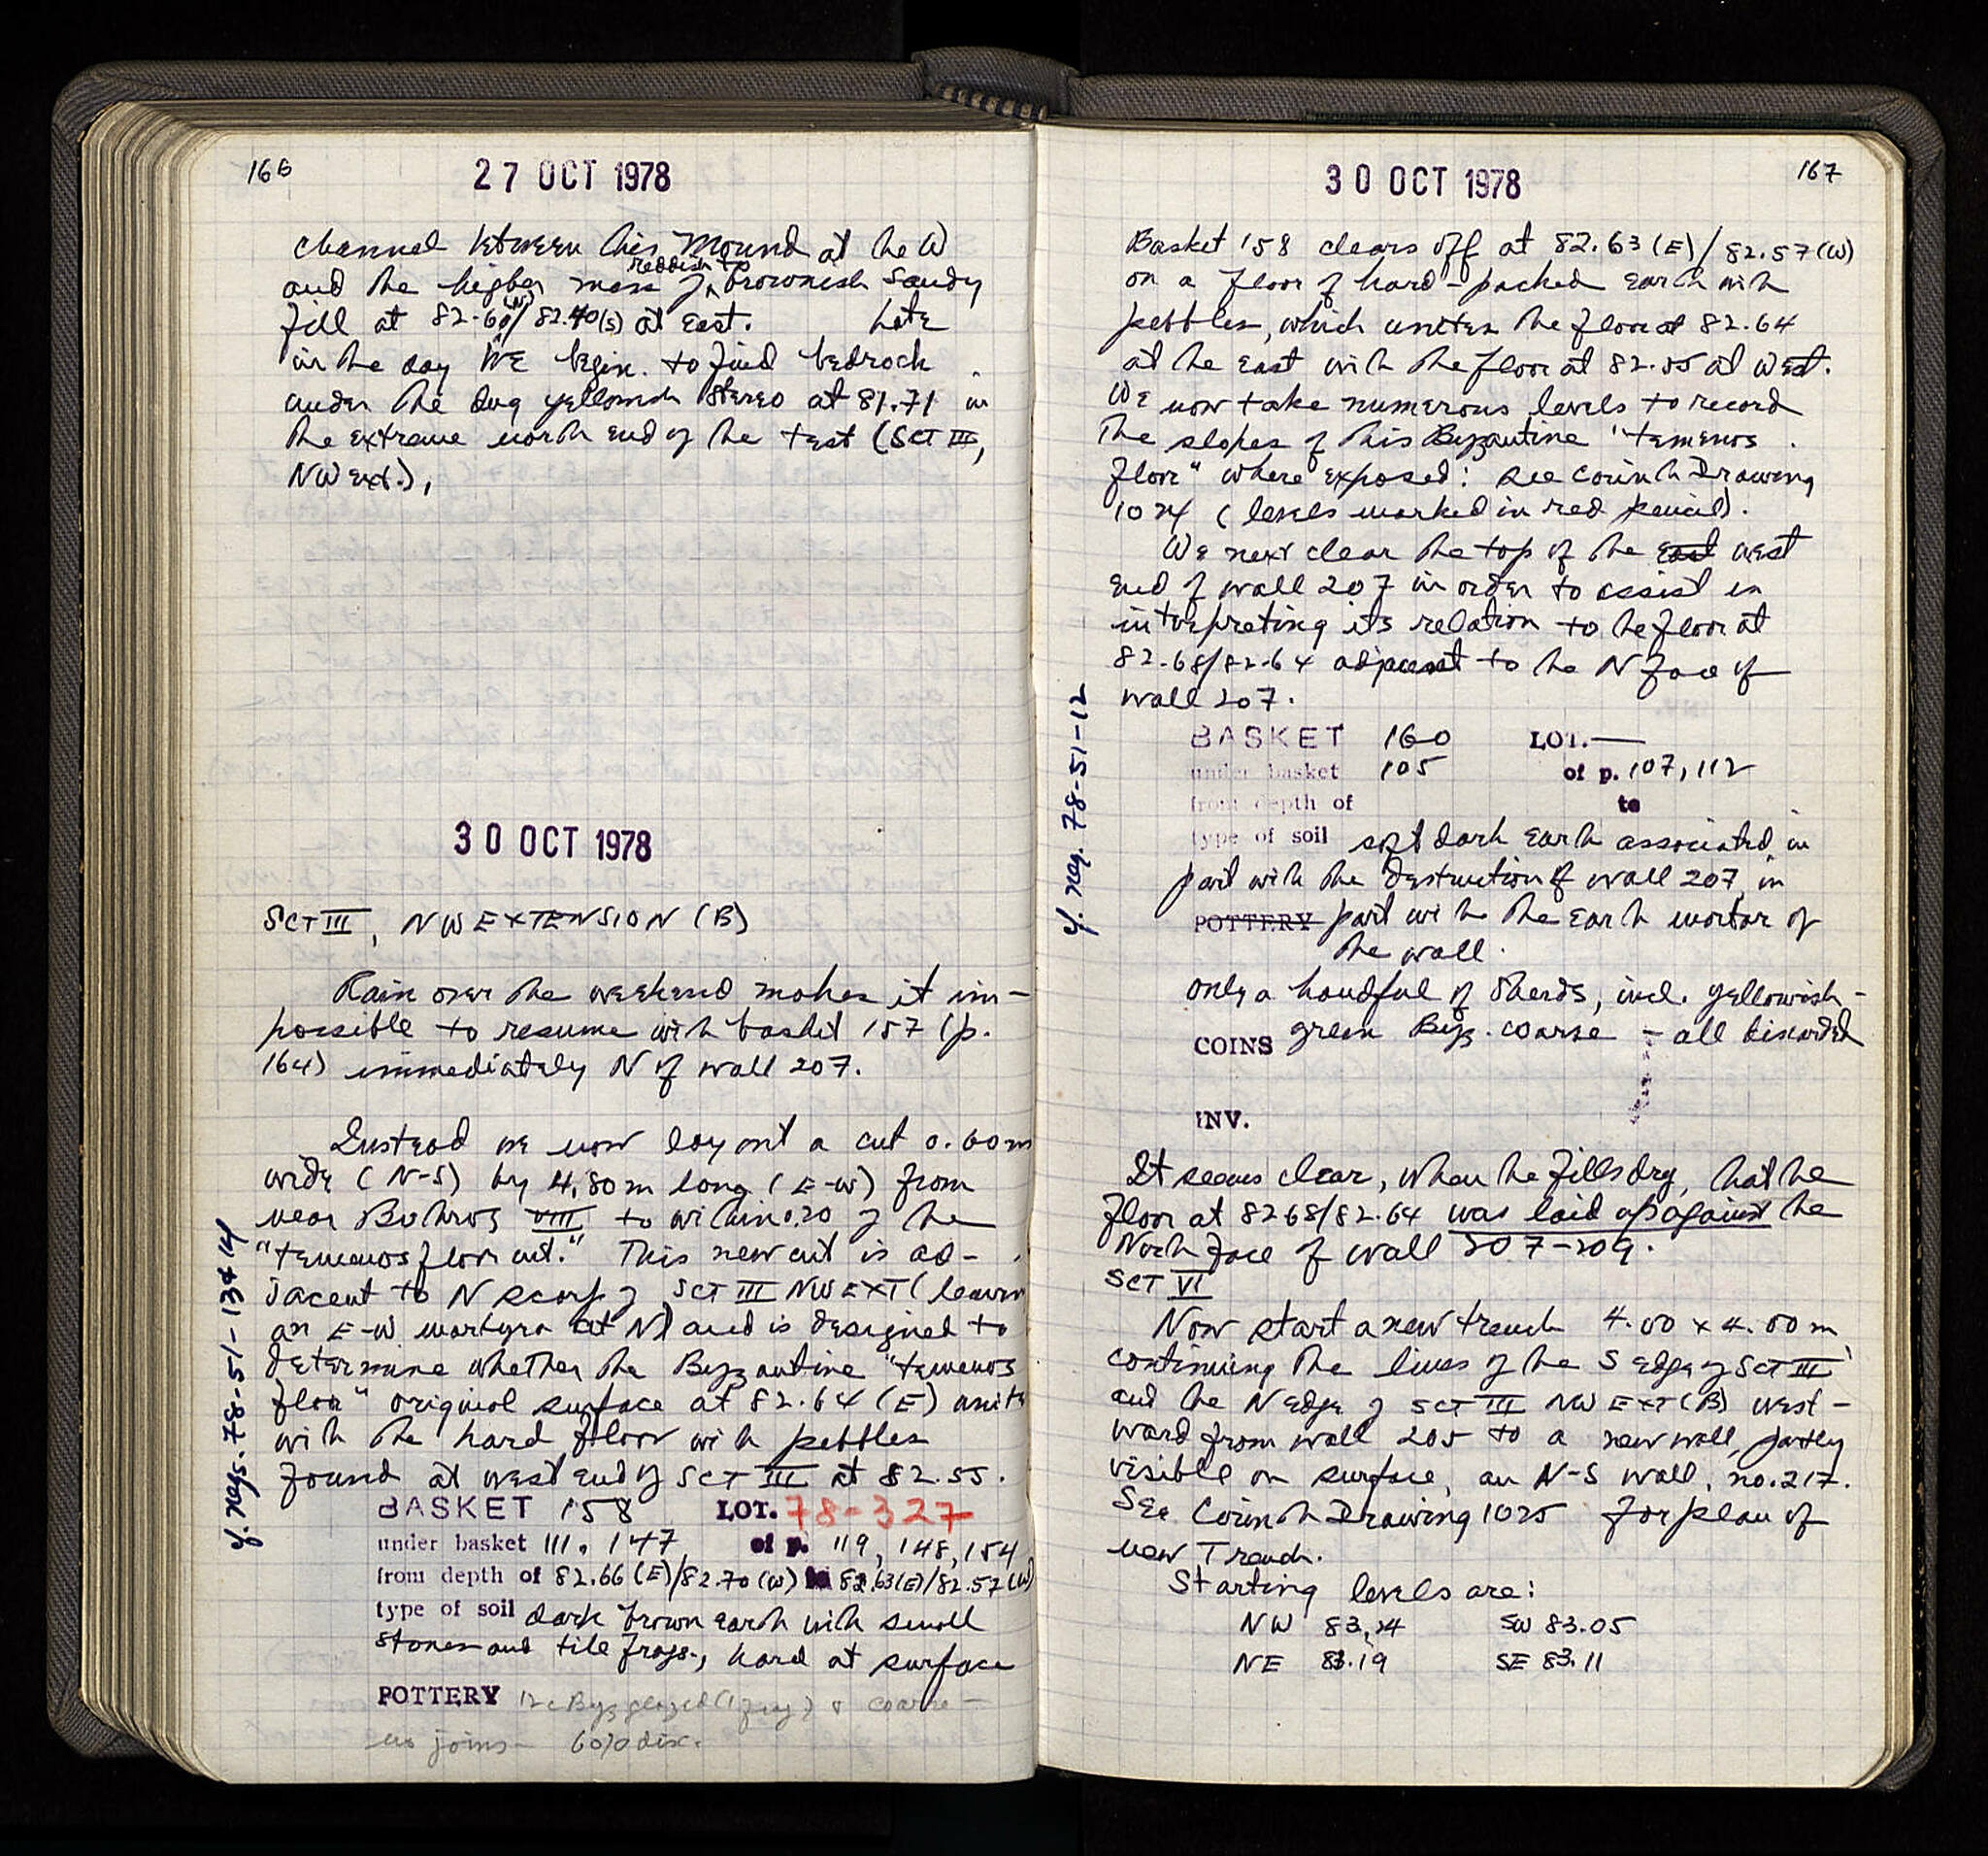 166
27 OCT 1978
channel between this mound at the W
and the higher mass of reddish to brownish sandy
fill at 82.60(N)/82.40(S) at east. Late
in the day WE begin to find bedrock
under the dug yellowish stereo at 81.71 in
the extreme north end of the test (SCT III,
NW ext.),
30 OCT 1978
SCT III, NW EXTENSION (B)
Rain over the weekend makes it im-
possible to resume with basket 157 (p.
164) immediately N of wall 207.
Instead we now lay out a cut 0.60m
wide (N-S) by 4.80m long (E-W) from
near Bothros VIII to within 0.20 of the
"temenos floor cut." This new cut is ad-
jacent to N scarp of SCT III NW EXT (leaving
an E-W martyra at N) and is designed to
determine whether the Byzantine "temenos
floor" original surface at 82.64 (E) unite
with the hard floor with pebbles
found at west end of SCT III at 82.55.
cf. negs. 78-51-13+14
BASKET 158 LOT. 78-327
under basket 111, 147 of p. 119, 148, 154
from depth of 82.66(E)/82.70(W) to 82.63(E)/82.57(W)
type of soil dark brown earth with small
stones and tile frags., hard at surface
POTTERY 12c Byz glazed (1 frag) & coarse -
no joins - 60% disc.
30 OCT 1978
167
Basket 158 clears off at 82.63(E)/82.57(W)
on a floor of hard-packed earth with
pebbles, which unites the floor at 82.64
at the east with the floor at 82.55 at west.
WE now take numerous levels to record
the slopes of this Byzantine "temenos
floor" where exposed: see Corinth Drawing
1024 (levels marked in red pencil).
We next clear the top of the east west
end of wall 207 in order to assist in
interpreting its relation to the floor at
82.68/82.64 adjacent to the N face of
wall 207.
cf. neg. 78-51-12
BASKET 160 LOT. —
under basket 105 of p. 107, 112
from depth of to
type of soil soft dark earth associated in
part with the destruction of wall 207, in
POTTERY part with the earth mortar of
the wall.
only a handful of sherds, incl. yellowish-
green Byz. coarse - all discarded
COINS
INV.
It seems clear, when the fills dry, that the
floor at 82.68/82.64 was laid up against the
North face of wall 207-209.
SCT VI
Now start a new trench 4.00 x 4.00 m
continuing the lines of the S edge of SCT III
and the N edge of SCT III NW EXT (B) west-
ward from wall 205 to a new wall, partly
visible on surface, an N-S wall, no. 217.
See Corinth Drawing 1025 for plan of
new Trench.
Starting levels are:
NW 83.24 SW 83.05
NE 83.19 SE 83.11